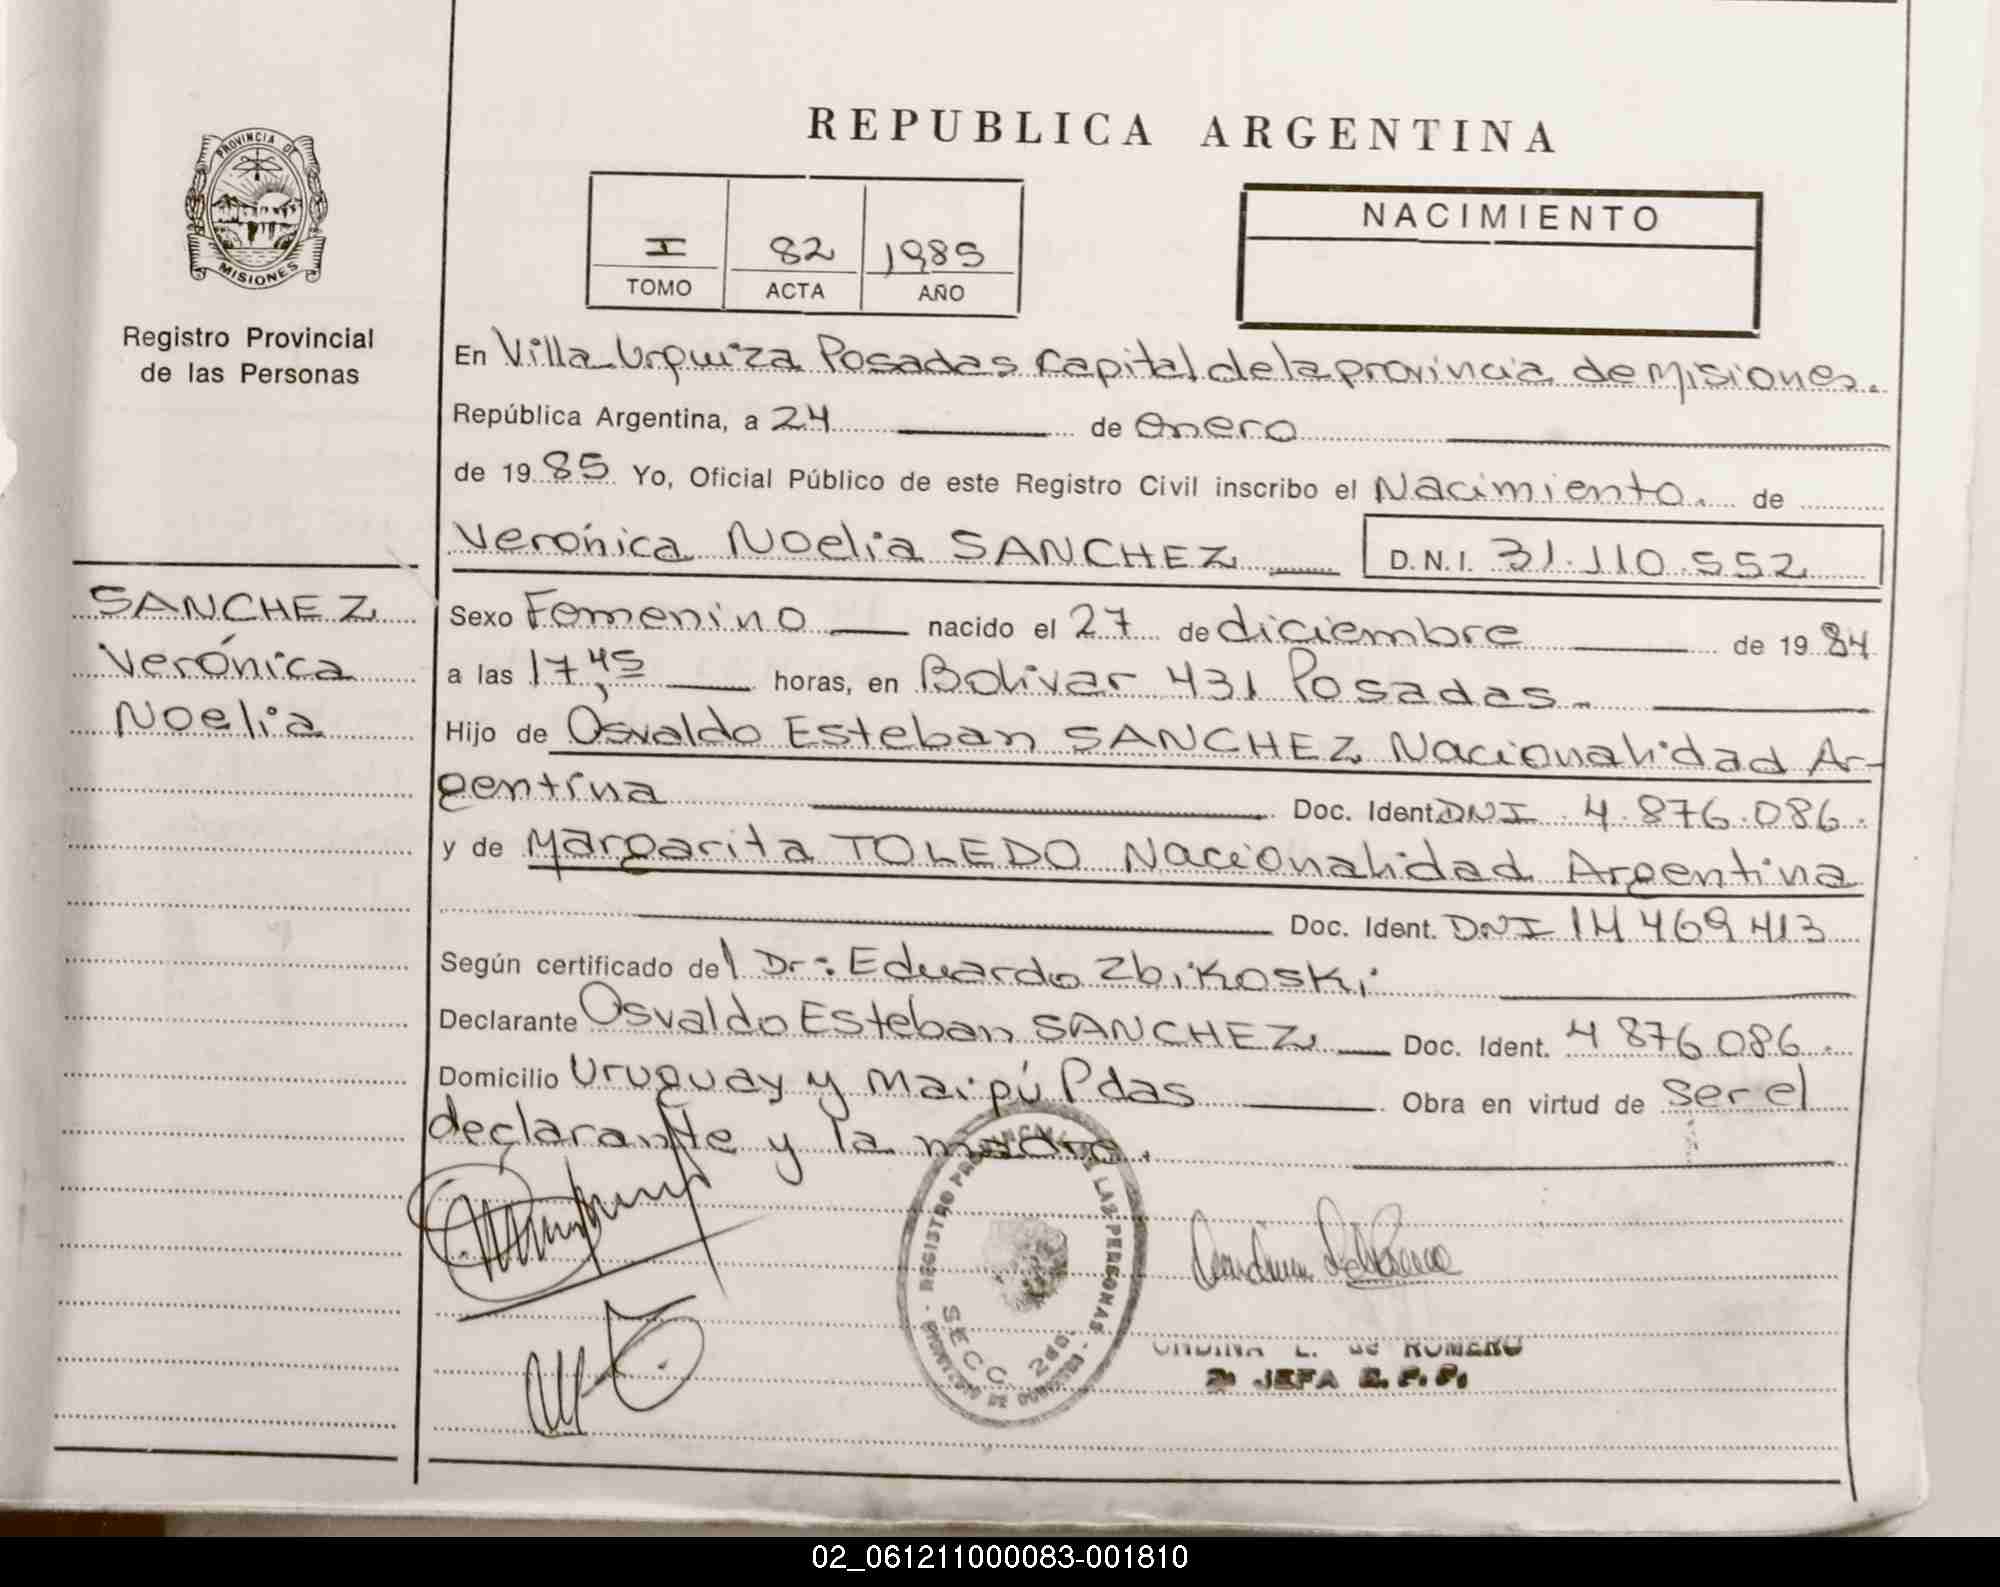 REPUBLICA ARGENTINA
PROVINCIA DE
MISIONES
Registro Provincial
de las Personas
I 82 1985
TOMO ACTA AÑO
NACIMIENTO
En Villa Urquiza Posadas Capital de la provincia de Misiones.
República Argentina, a 24 de Enero
de 1985 Yo, Oficial Público de este Registro Civil inscribo el Nacimiento. de
Verónica Noelia SANCHEZ D.N.I. 31.110.552
SANCHEZ
Verónica
Noelia
Sexo Femenino nacido el 27 de diciembre de 1984
a las 17,45 horas, en Bolivar 431 Posadas.
Hijo de Osvaldo Esteban SANCHEZ Nacionalidad Ar-
gentina Doc. Ident. DNI 4.876.086.
y de Margarita TOLEDO Nacionalidad Argentina
Doc. Ident. DNI 14 469 413
Según certificado del Dr.: Eduardo Zbikoski
Declarante Osvaldo Esteban SANCHEZ Doc. Ident. 4 876 086.
Domicilio Uruguay y Maipú Pdas Obra en virtud de ser el
declarante y la madre.
REGISTRO PROVINCIAL DE LAS PERSONAS
SECC.
ONDINA L. de ROMERO
2a JEFA R. P. P.
02_061211000083-001810